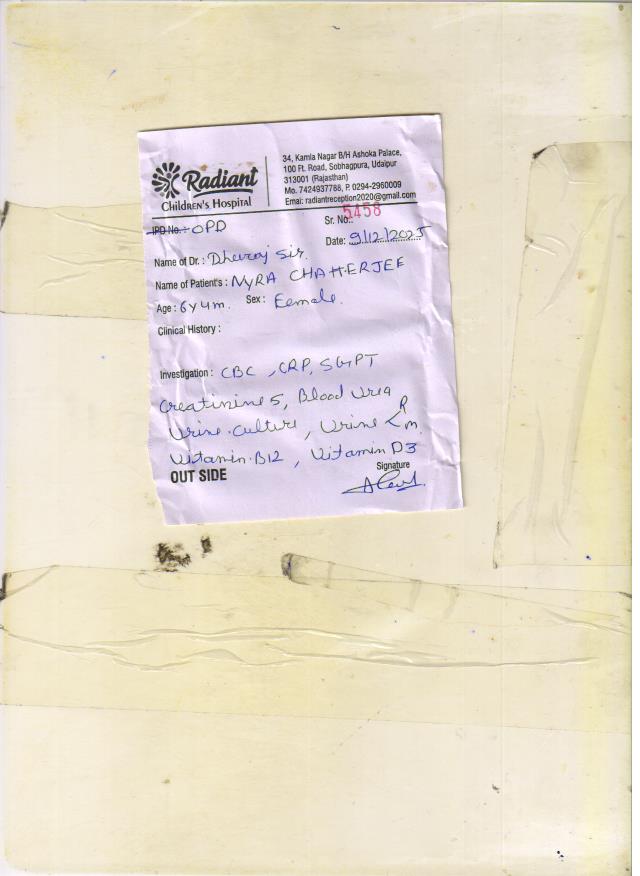 Radiant
Children's Hospital
34, Kamla Nagar B/H Ashoka Palace,
100 Ft. Road, Sobhagpura, Udaipur
313001 (Rajasthan)
Mo. 7424937788, P. 0294-2960009
Emai: radiantreception2020@gmail.com
IPD No.: OPD
Sr. No.: 5458
Date: 9/12/2025
Name of Dr.: Dheeraj Sir.
Name of Patient's: NYRA CHATTERJEE
Age: 6y4m. Sex: Female.
Clinical History:
Investigation: CBC, CRP, SGPT
Creatinine S, Blood Urea
Urine culture, Urine R/m.
Vitamin B12, Vitamin D3
OUT SIDE
Signature